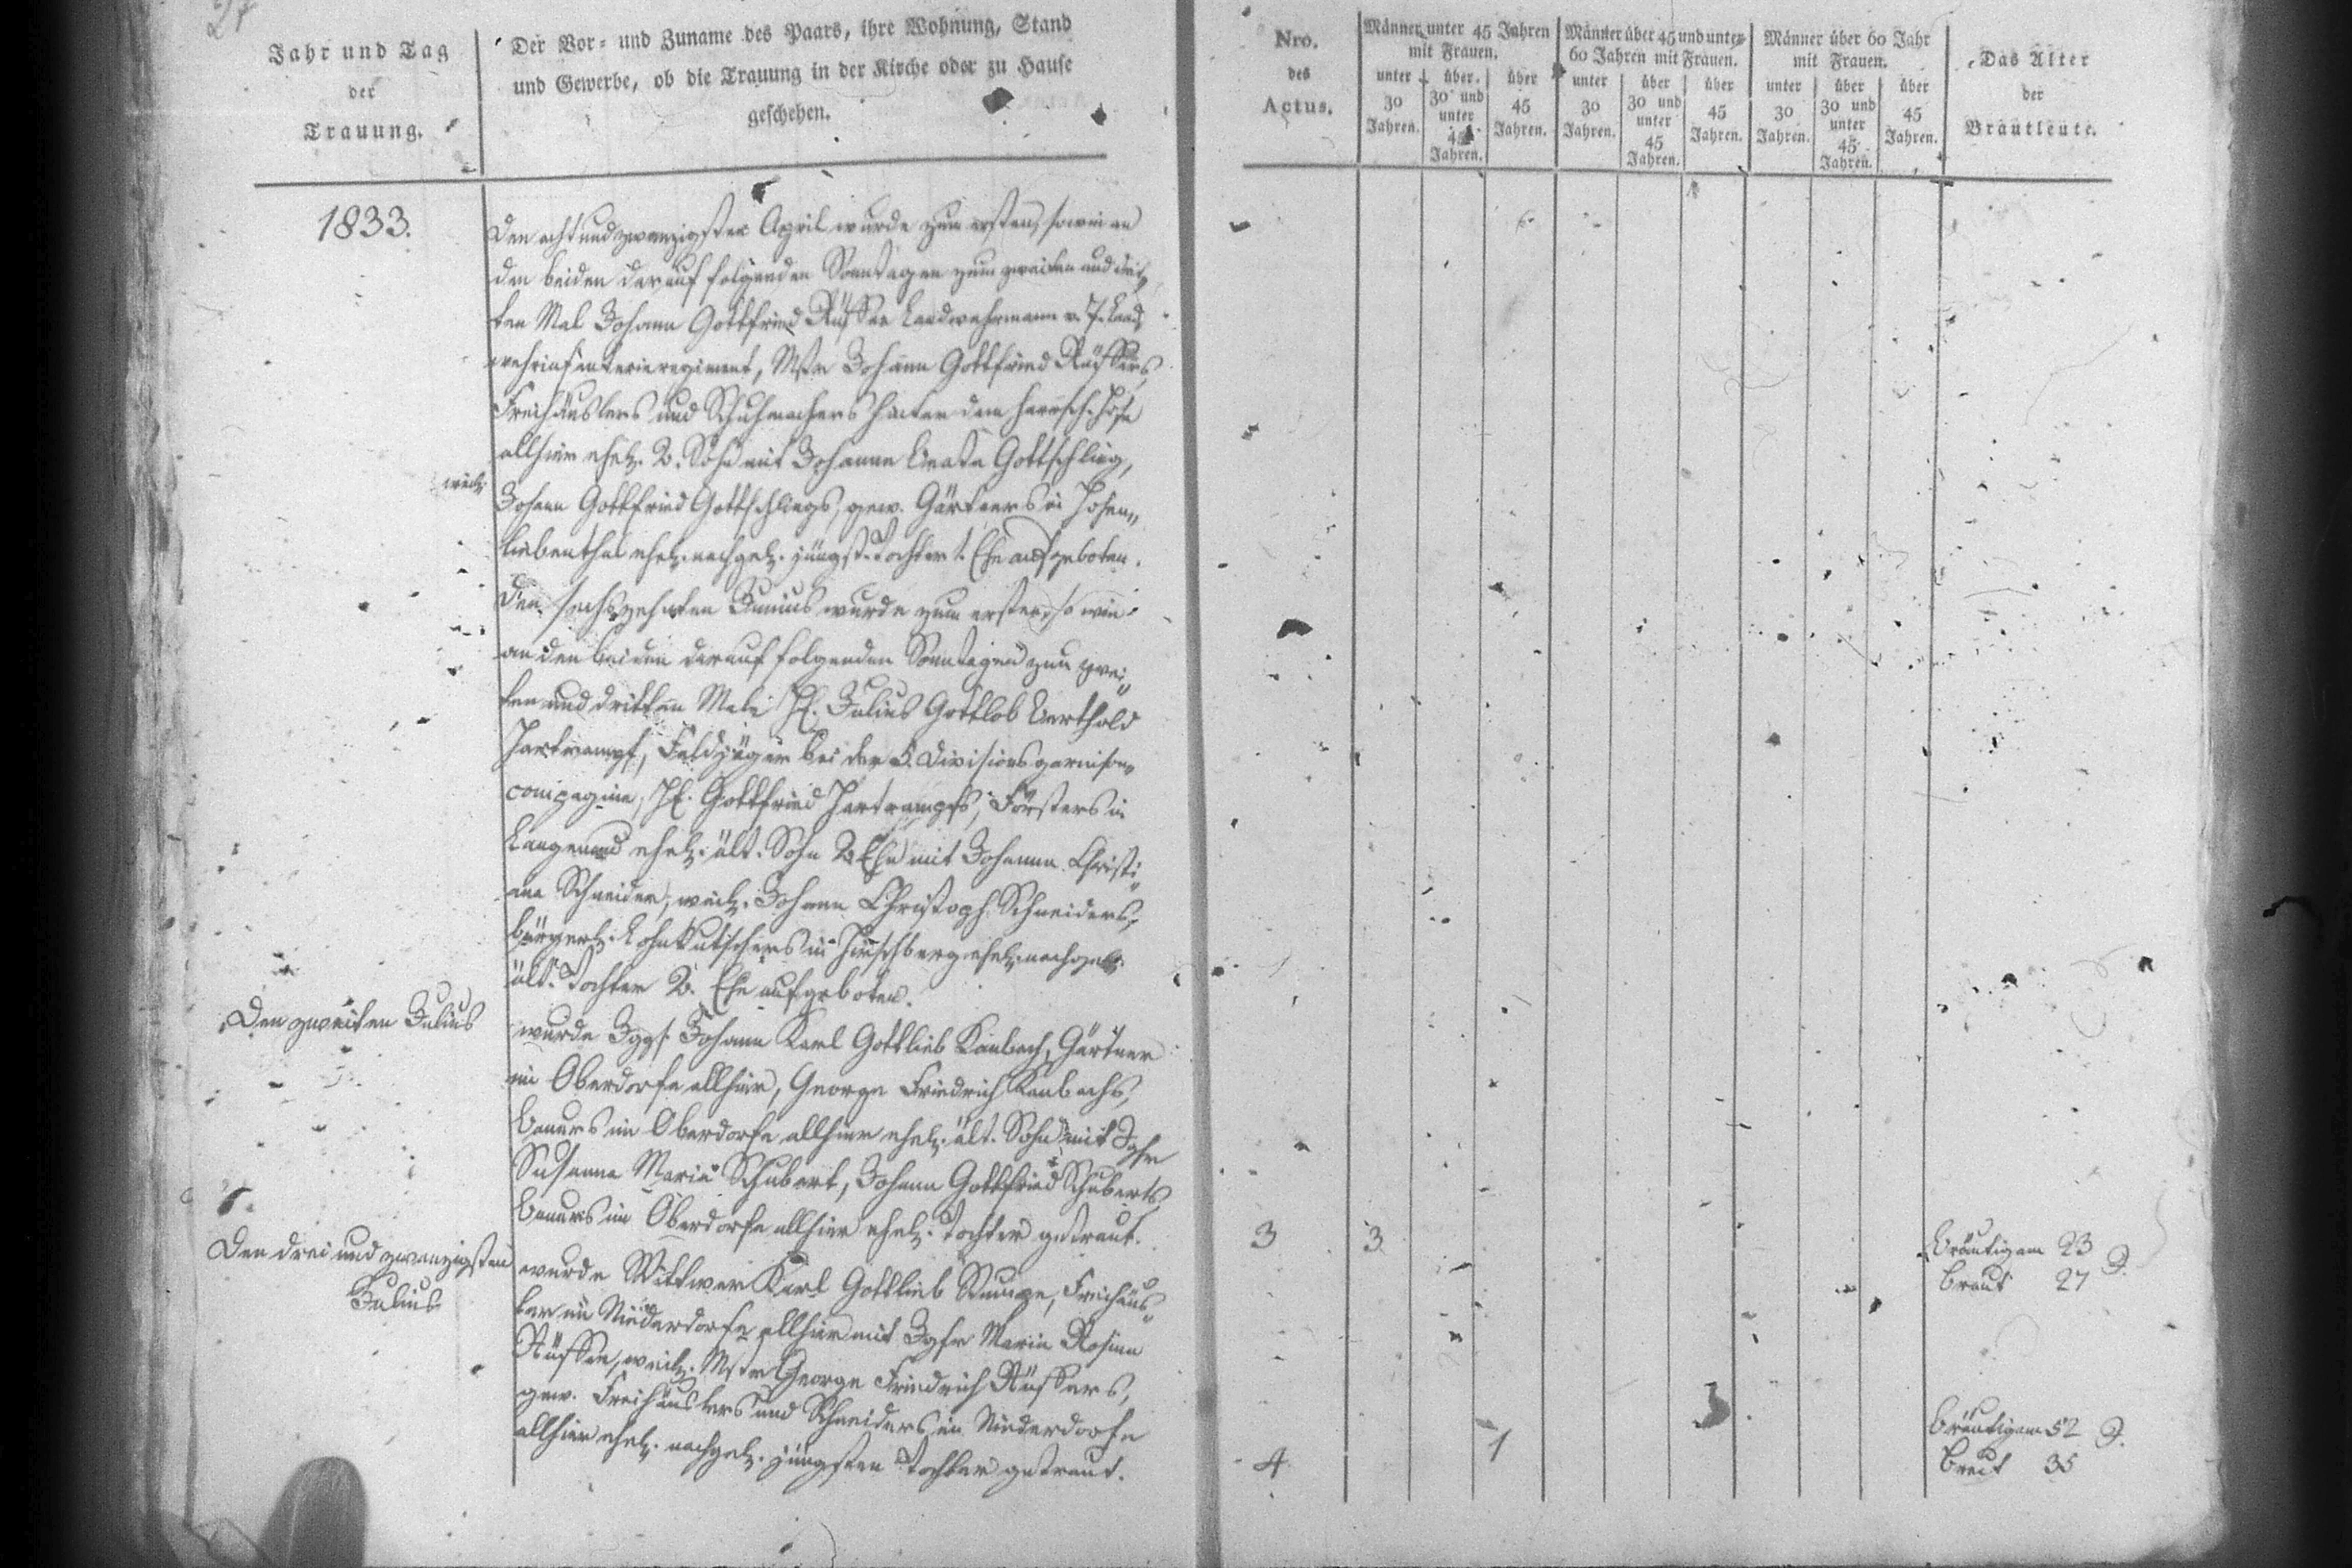 Jahr und Tag
der
Trauung.
Der Vor- und Zuname des Paars, ihre Wohnung, Stand
und Gewerbe, ob die Trauung in der Kirche oder zu Hause
geschehen.
Nro.
des
Actus.
Männer unter 45 Jahren
mit Frauen.
unter
30
Jahren.
über
30 und
unter
45
Jahren.
über
45
Jahren.
Männer über 45 und unter
60 Jahren mit Frauen.
unter
30
Jahren.
über
30 und
unter
45
Jahren.
über
45
Jahren.
Männer über 60 Jahr
mit Frauen.
unter
30
Jahren.
über
30 und
unter
45
Jahren.
über
45
Jahren.
Das Alter
der
Brautleute.
1833.
Den achtundzwanzigsten April wurde zum ersten, sowie an
den beiden darauf folgenden Sonntagen zum zweiten und drit-
ten Mal Johann Gottfried Landwehrmann v. 7. Land
wehrinfanterieregiment, Mstr Johann Gottfried
Freihäuslers und Schuhmachers hinter dem herrsch. Hofe
allhier ehel. 2. Sohn mit Johanne Beate Gottschling,
weil.
Johann Gottfried Gottschlings, gew. Gärtners in Hohen-
liebenthal ehel. nachgel. jüngst. Tochter 1. Ehe aufgeboten.
Den sechszehnten Junius wurde zum ersten, so wie
an den beiden darauf folgenden Sonntagen zum zwei-
ten und dritten Male H. Julius Gottlob Berthold
Hartrampf, Feldjäger bei der 5. Divisions garnison-
compagnie, H. Gottfried Hartrampfs, Försters in
Langenau ehel. ält. Sohn 2. Ehe mit Johanne Christi-
ane Schneider, weil. Johann Christoph Schneiders,
bürgerl. Lohnkutschers in Hirschberg ehel. nachgel.
ält. Tochter 2. Ehe aufgeboten.
Den zweiten Julius
wurde Jggs. Johann Karl Gottlieb Kambach, Gärtner
im Oberdorfe allhier, George Friedrich Kambachs,
Bauers im Oberdorfe allhier ehel. ält. Sohn mit Jgfr
Susanne Marie Schubert, Johann Gottfried Schuberts
Bauers im Oberdorfe allhier ehel. Tochter getraut.
3 3 Bräutigam 23 J.
Braut 27
Den drei und zwanzigsten
Julius
wurde Wittwer Karl Gottlieb Freihäus-
ler im Niederdorfe allhier mit Jgfr Marie Rosine
weil. Mstr George Friedrich
gew. Freihäuslers und Schneiders im Niederdorfe
allhier ehel. nachgel. jüngsten Tochter getraut.
4 1 Bräutigam 52 J.
Braut 35